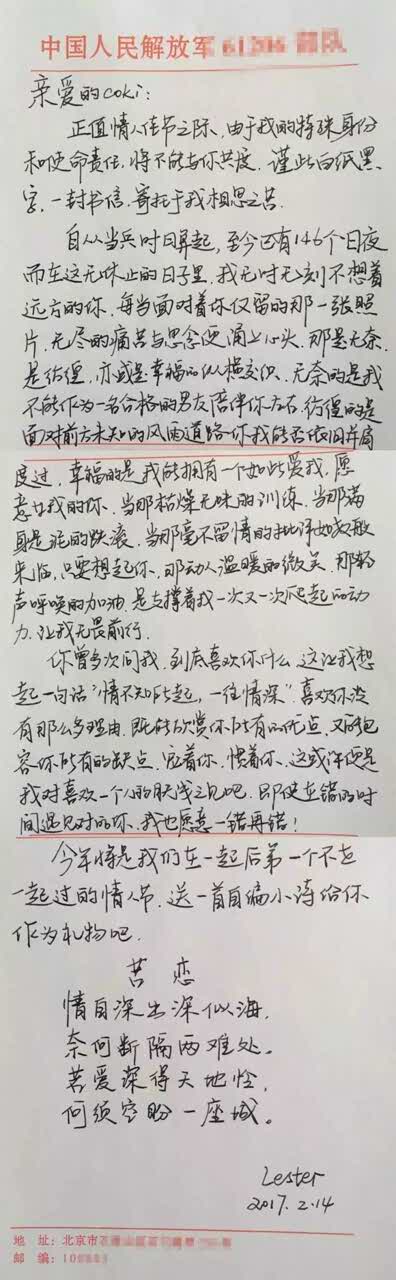 中国人民解放军 61206 部队
亲爱的coki:
正值情人佳节之际、由于我的特殊身份
和使命责任,将不能与你共度,谨此白纸黑
字,一封书信,寄托于我相思之苦.
自从当兵时日算起,至今已有146个日夜
而在这无休止的日子里,我无时无刻不想着
远方的你、每当面对着你仅留的那一张照
片,无尽的痛苦与思念便涌上心头,那是无奈,
是彷徨,亦或是幸福的纵横交织,无奈的是我
不能作为一名合格的男友陪伴你左右,彷徨的是
面对前方未知的风雨道路你我能否依旧并肩
度过,幸福的是我能拥有一个如此爱我,愿
意让我的你、当那枯燥无味的训练,当那满
身是泥的跌滚,当那毫不留情的批评如城般
来临,只要想起你,那动人温暖的微笑,那轻
声呼唤的加油,是支撑着我一次又一次爬起的动
力,让我无畏前行.
你曾多次问我,到底喜欢你什么,这让我想
起一句话"情不知所起,一往情深"喜欢你没
有那么多理由,既能欣赏你所有的优点,又能包
容你所有的缺点,宠着你,惯着你、这或许便是
我对喜欢一个人的肤浅之见吧,即使在错的时
间遇见对的你,我也愿意一错再错!
今年将是我们在一起后第一个不在
一起过的情人节,送一首自编小诗给你
作为礼物吧.
苦恋
情自深出深似海,
奈何断隔两难处。
若爱深得天地怜,
何须空盼一座城。
Lester
2017.2.14
地 址:北京市
邮 编:10